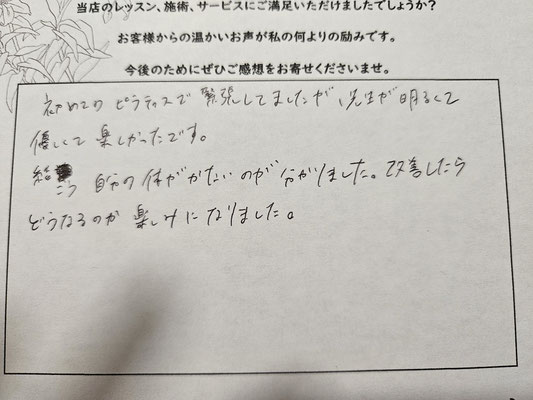 当店のレッスン、施術、サービスにご満足いただけましたでしょうか？
お客様からの温かいお声が私の何よりの励みです。
今後のためにぜひご感想をお寄せくださいませ。
初めての ピラティスで 緊張してましたが、先生が明るくて
優しくて 楽しかったです。
結こう 自分の体がかたいのが 分かりました。改善したら
どうなるのか 楽しみに なりました。